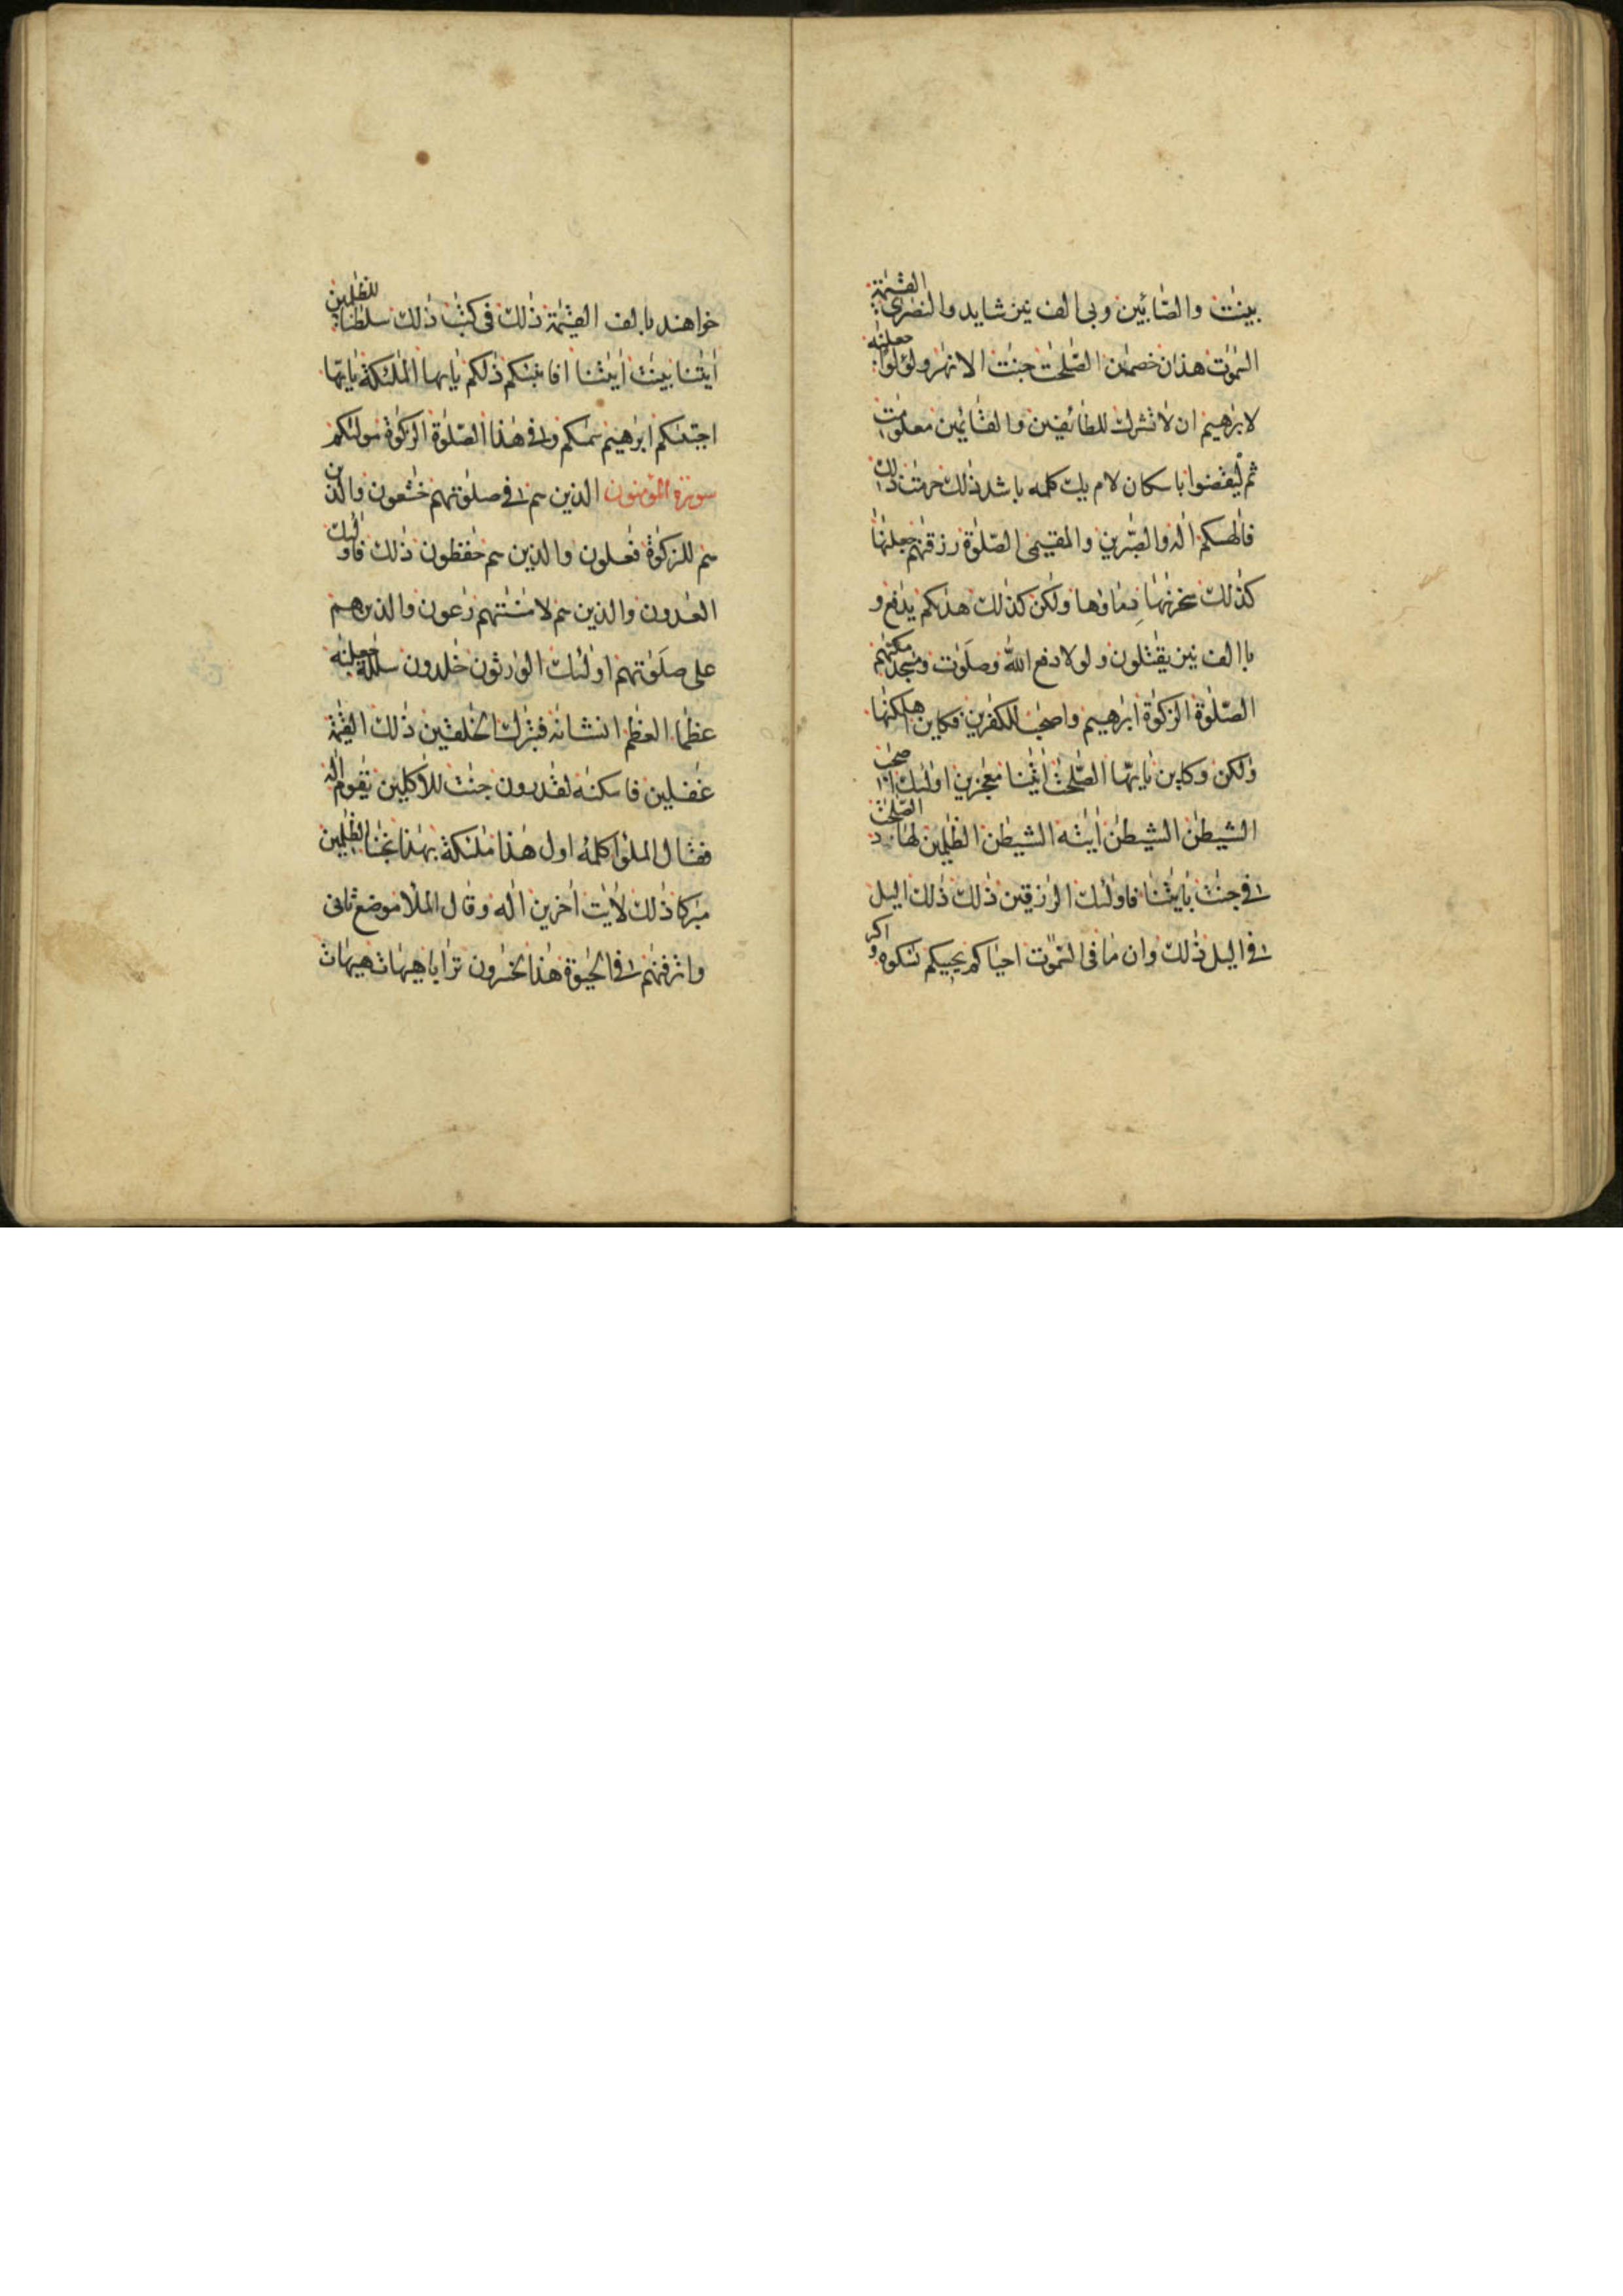 بينٰت والصٰابئين وبى الف نيز شايد والنصٰرى القيٰمة
السمٰوٰت هذٰان خصمٰن الصّٰلحٰت جنٰت الانهٰر ولؤلؤا جعلنٰه
لابرٰهيم ان لا تشرك للطائفين والقٰائمين معلومٰت
ثم ليقضوا باسكان لام يك كلمه باشد ذٰلك حرمٰت ذٰلك
فالٰهكم الٰه والصّٰبرين والمقيمى الصّلوٰة رزقنٰهم جعلنٰها
كذٰلك سخرنٰها دماؤها ولٰكن كذٰلك هدٰىكم يدٰفع و
با الف نيز يقٰتلون ولولا دفع اللّٰه وصلَوٰت ومسٰجد مكنّٰهم
الصّلوٰة الزكوٰة ابرٰهيم واصحٰب للكٰفرين فكاين اهلكنٰها
ولٰكن وكاين يٰايّها الصّٰلحٰت اٰيٰتنا معٰجزين اولٰئك اصحٰب
الشيطٰن الشيطٰن اٰيٰته الشيطٰن الظٰلمين لهاد الصّٰلحٰت
فى جنٰت بايٰتنا فاولٰئك الرٰزقين ذٰلك ذٰلك اليل
فى اليل ذٰلك وان ما فى السّمٰوٰت احياكم يحييكم نكوه و اكر
خواهند با لف القيٰمة ذٰلك فى كتٰب ذٰلك سلطٰنا للظٰلمين
اٰيٰتنا بينٰت اٰيٰتنا افانبئكم ذٰلكم يٰايها الملٰئكة يٰايّها
اجتبٰىكم ابرٰهيم سمٰىكم وفى هٰذا الصّلوٰة الزكوٰة مولٰىكم
سورة المؤمنون الذين هم فى صلوٰتهم خٰشعون والذين
هم للزكوٰة فٰعلون والذين هم حٰفظون ذٰلك فاولٰئك
العٰدون والذين هم لامٰنٰتهم رٰعون والذين هم
على صلَوٰتهم اولٰئك الوٰرثون خٰلدون سلٰلة جعلنٰه
عظٰما العظٰم انشانٰه فتبٰرك الخٰلقين ذٰلك القيٰمة
غٰفلين فاسكنّٰه لقٰدرون جنّٰت للآكلين يٰقوم الٰه
فقال الملؤا كلمۀ اول هٰذا ملٰئكة بهٰذا نجّٰنا الظٰلمين
مبٰركا ذٰلك لاٰيٰت اٰخرين الٰه وقال الملأ موضع ثانى
واترفنٰهم فى الحيٰوة هٰذا لخٰسرون ترابا هيهات هيهات